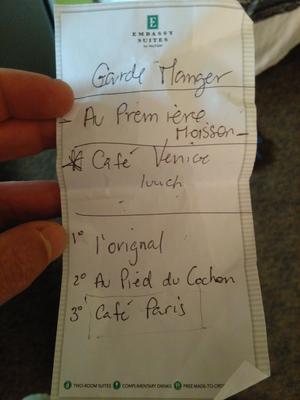 E
EMBASSY
SUITES
by HILTON
Garde Manger
- Au Première
Moisson -
* Café Venice
lunch
1° l'orignal
2° Au Pied du Cochon
3° Café Paris
TWO-ROOM SUITES COMPLIMENTARY DRINKS FREE MADE-TO-ORD